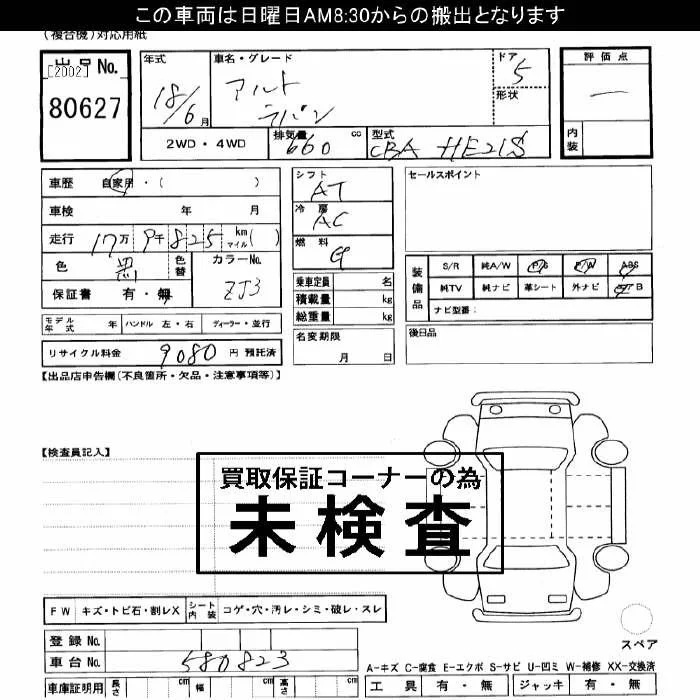 この車両は日曜日AM8:30からの搬出となります
(複合機)対応用紙
出品No. [2002] 80627
年式 18/6月
車名・グレード アルト ラパン
ドア 5
形状
評価点 —
内装
2WD・4WD 排気量 660 cc 型式 CBA HE21S
車歴 自家用・( )
車検 年 月
走行 17万 9千 825 km マイル( )
色 黒 色替 カラーNo. ZJ3
保証書 有・無
シフト AT
冷房 AC
燃料 G
乗車定員 名
積載量 kg
総重量 kg
名変期限 月 日
セールスポイント
装備品 S/R 純A/W P/S P/W ABS
純TV 純ナビ 革シート 外ナビ B
ナビ型番:
後日品
モデル年式 年 ハンドル 左・右 ディーラー・並行
リサイクル料金 9080 円 預託済
【出品店申告欄(不良箇所・欠品・注意事項等)】
【検査員記入】
買取保証コーナーの為
未検査
FW キズ・トビ石・割レX シート内装 コゲ・穴・汚レ・シミ・破レ・スレ
登録No.
車台No. 580823
車庫証明用 長さ cm 幅 cm 高さ cm
スペア
A-キズ C-腐食 E-エクボ S-サビ U-凹ミ W-補修 XX-交換済
工具 有・無 ジャッキ 有・無